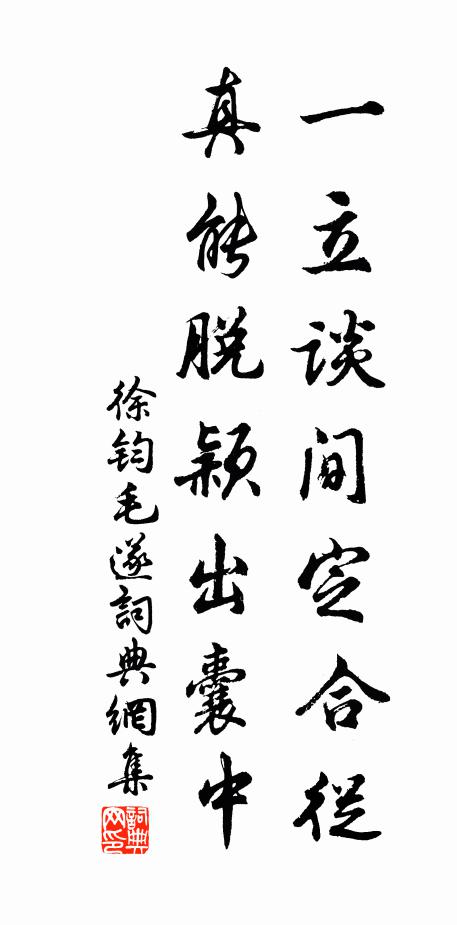 一立談间定合從
真能脱颖出囊中
徐钧毛遂詞典網集
詞典网印